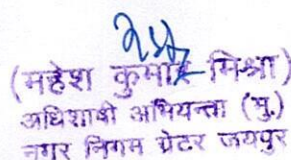 (महेश कुमार मिश्रा)
अधिशाषी अभियन्ता (मु.)
नगर निगम ग्रेटर जयपुर